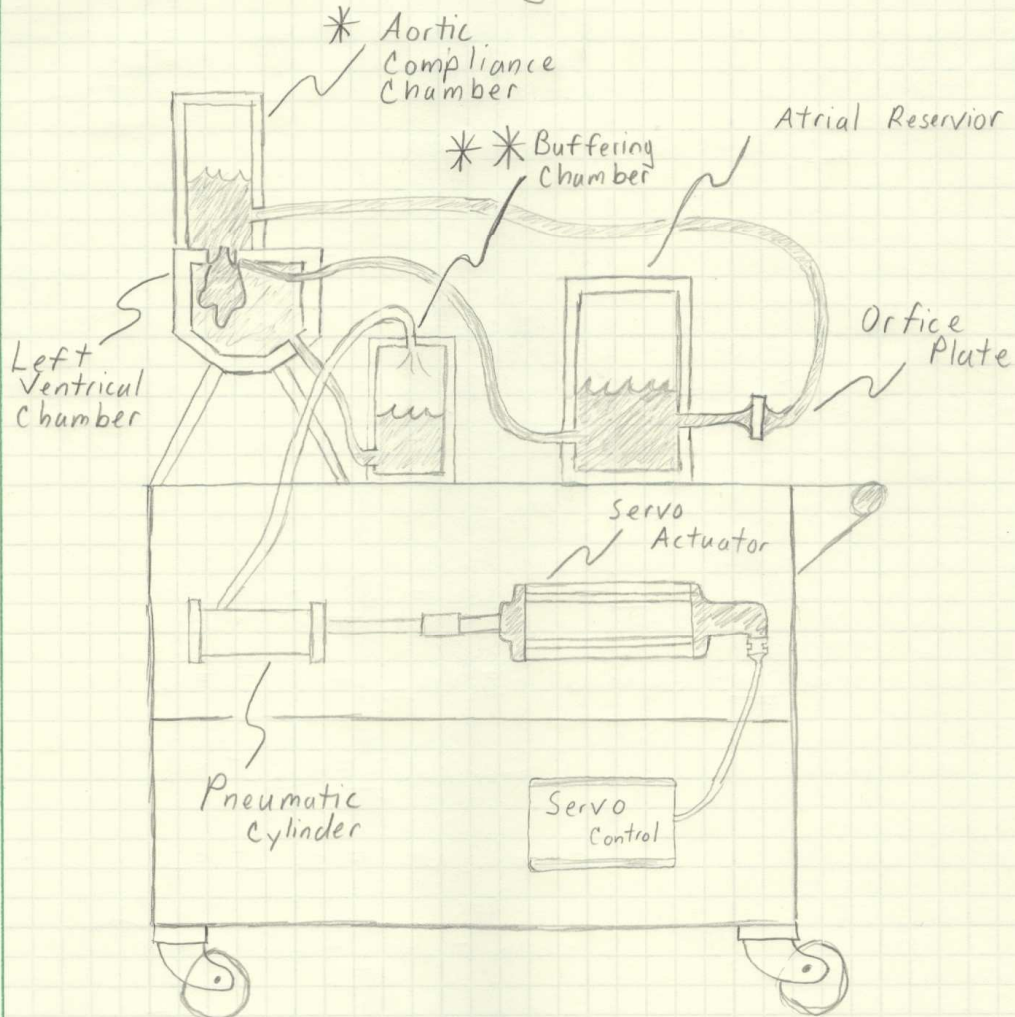 * Aortic
Compliance
Chamber
** Buffering
Chamber
Atrial Reservior
Left
Ventrical
Chamber
Orfice
Plate
Servo
Actuator
Pneumatic
Cylinder
Servo
Control